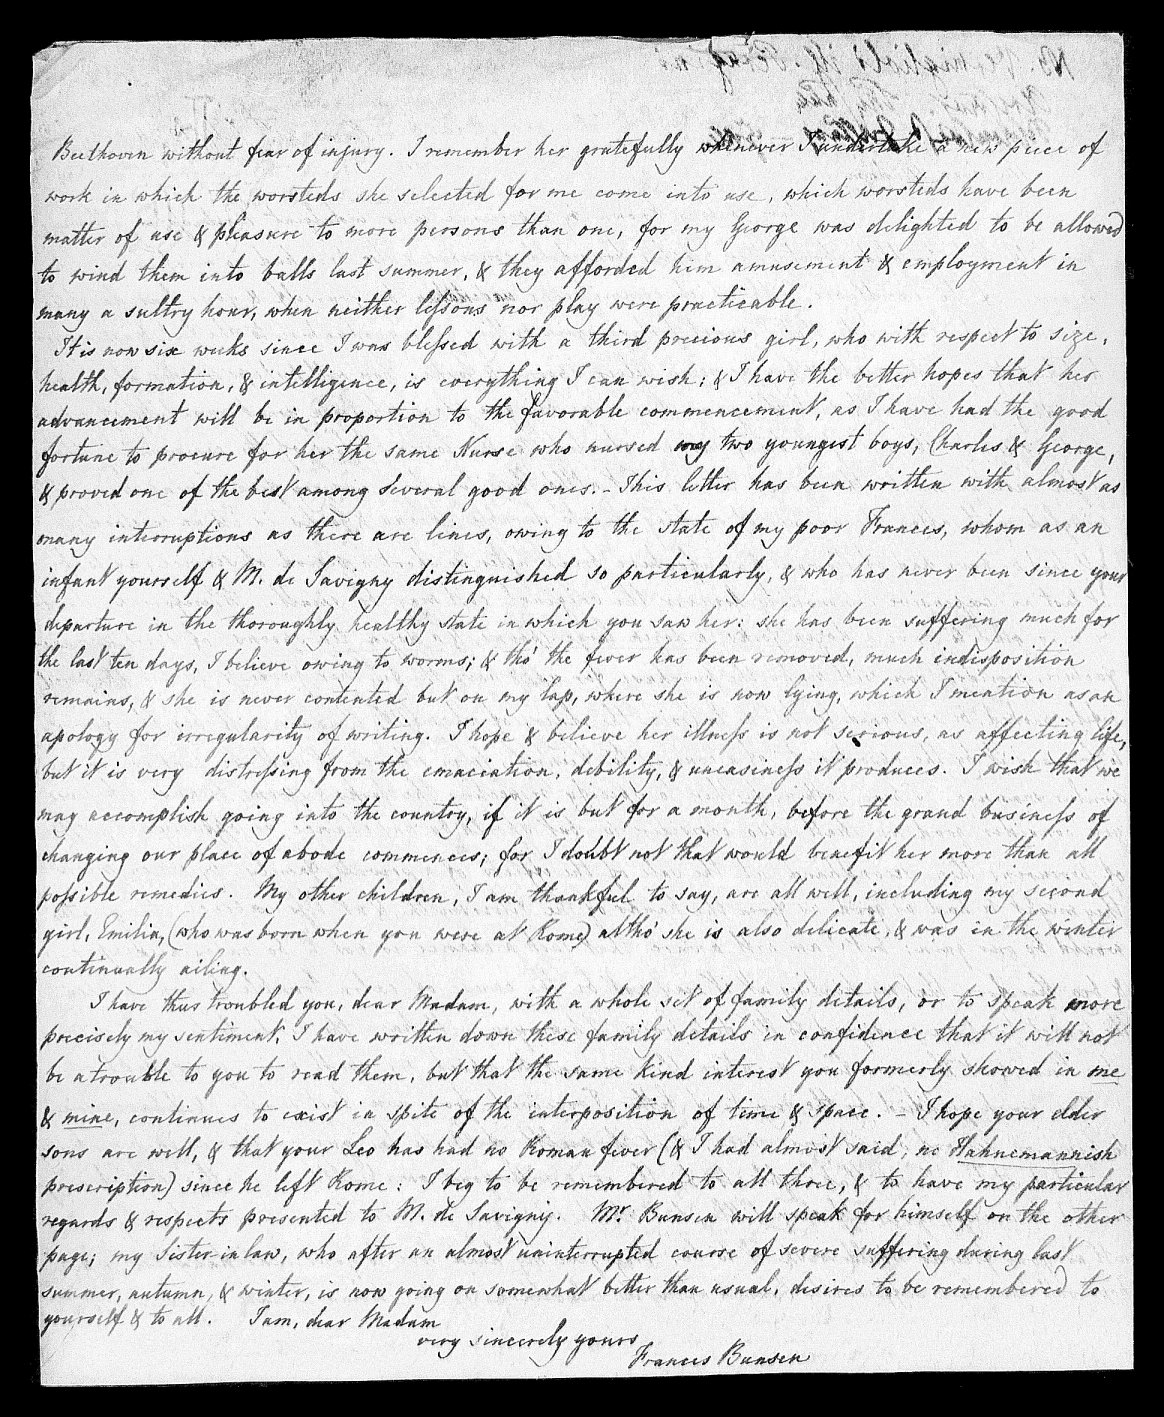 Beethoven without fear of injury. I remember her gratefully whenever I undertake a new piece of
work in which the worsteds she selected for me come into use, which worsteds have been
matter of use & pleasure to more persons than one, for my George was delighted to be allowed
to wind them into balls last summer, & they afforded him amusement & employment in
many a sultry hour, when neither lessons nor play were practicable.
It is now six weeks since I was blessed with a third precious girl, who with respect to size,
health, formation, & intelligence, is everything I can wish; & I have the better hopes that her
advancement will be in proportion to the favorable commencement, as I have had the good
fortune to procure for her the same Nurse who nursed my two youngest boys, Charles & George,
& proved one of the best among several good ones. - This letter has been written with almost as
many interruptions as there are lines, owing to the state of my poor Frances, whom as an
infant yourself & M. de Savigny distinguished so particularly, & who has never been since your
departure in the thoroughly healthy state in which you saw her: she has been suffering much for
the last ten days, I believe owing to worms; & tho' the fever has been removed, much indisposition
remains, & she is never contented but on my lap, where she is now lying, which I mention as an
apology for irregularity of writing. I hope & believe her illness is not serious, as affecting life,
but it is very distressing from the emaciation, debility, & uneasiness it produces. I wish that we
may accomplish going into the country, if it is but for a month, before the grand business of
changing our place of abode commences; for I doubt not that would benefit her more than all
possible remedies. My other children, I am thankful to say, are all well, including my second
girl, Emilia, (who was born when you were at Rome) altho' she is also delicate, & was in the winter
continually ailing.
I have thus troubled you, dear Madam, with a whole set of family details, or to speak more
precisely my sentiment, I have written down these family details in confidence that it will not
be a trouble to you to read them, but that the same kind interest you formerly showed in me
& mine, continues to exist in spite of the interposition of time & space. - I hope your elder
sons are well, & that your Leo has had no Roman fever (& I had almost said, no Hahnemannish
prescription) since he left Rome: I beg to be remembered to all three, & to have my particular
regards & respects presented to M. de Savigny. Mr. Bunsen will speak for himself on the other
page; my Sister-in-law, who after an almost uninterrupted course of severe suffering during last
summer, autumn, & winter, is now going on somewhat better than usual, desires to be remembered to
yourself & to all. I am, dear Madam
very sincerely yours
Frances Bunsen